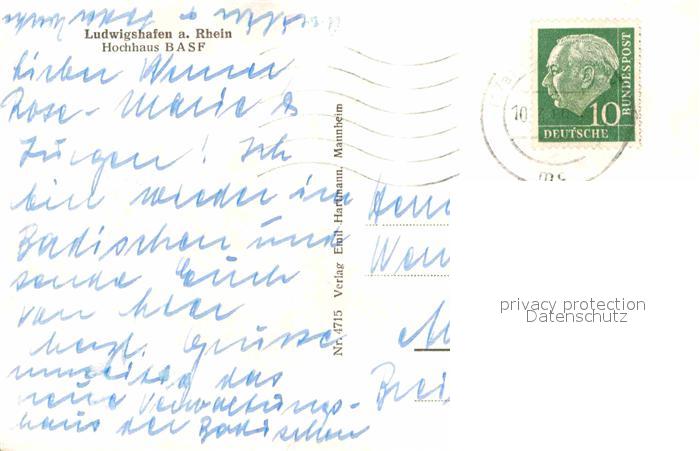 Ludwigshafen a. Rhein
Hochhaus BASF
Lieber Werner,
Rose-Marie &
Jürgen! Ich
bin wieder im
Badischen und
sende Euch
von hier
herzl. Grüsse
umseitig das
neue Verwaltungs-
haus der Badischen
Nr. 4715 Verlag Emil Hartmann, Mannheim
10
DEUTSCHE
BUNDESPOST
Herrn
privacy protection
Datenschutz